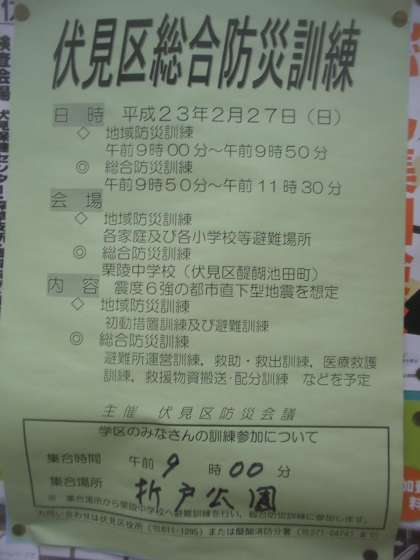 伏見区総合防災訓練
日 時 平成23年2月27日（日）
◇ 地域防災訓練
午前9時00分～午前9時50分
◎ 総合防災訓練
午前9時50分～午前11時30分
会 場
◇ 地域防災訓練
各家庭及び各小学校等避難場所
◎ 総合防災訓練
栗陵中学校（伏見区醍醐池田町）
内 容 震度6強の都市直下型地震を想定
◇ 地域防災訓練
初動措置訓練及び避難訓練
◎ 総合防災訓練
避難所運営訓練，救助・救出訓練，医療救護
訓練，救援物資搬送・配分訓練 などを予定
主催 伏見区防災会議
学区のみなさんの訓練参加について
集合時間 午前 9 時 00 分
集合場所 折戸公園
※ 集合場所から栗陵中学校へ避難訓練を行い，総合防災訓練に参加します。
お問い合わせは伏見区役所（☎611-1295）または醍醐消防分署
検査会場